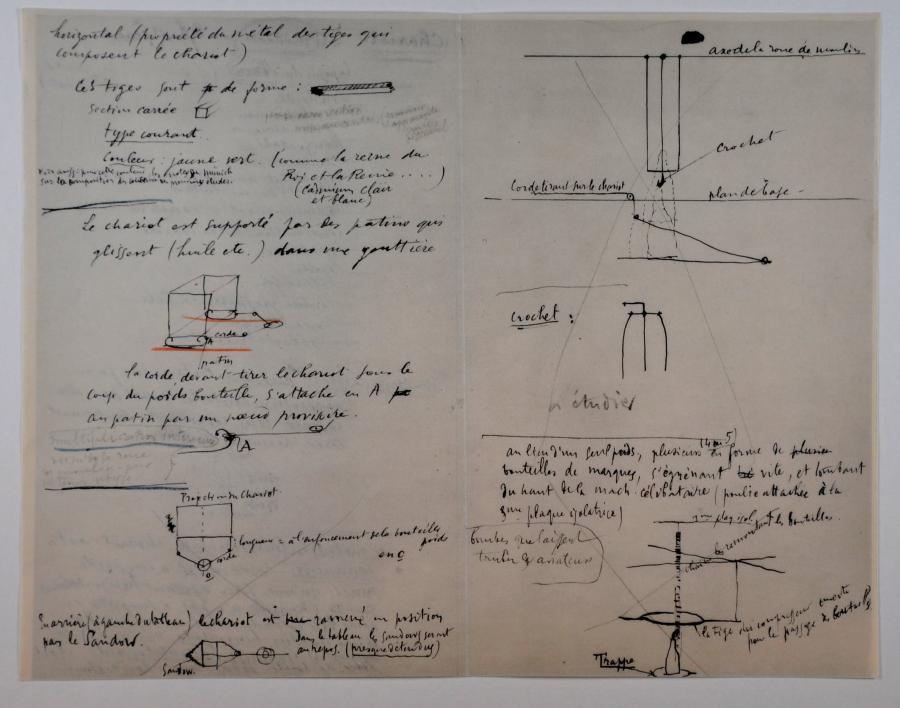 horizontal (propriété du métal des tiges qui
composent le chariot)
Ces tiges sont de forme :
Section carrée
type courant.
Couleur : jaune vert. (comme la reine du
Roi et la Reine . . . . )
(cadmium clair
et blanc)
Le chariot est supporté par des patins qui
glissent (huile etc.) dans une gouttière
corde
A
patin
la corde, devant tirer le chariot sous le
coup du poids bouteille, s'attache en A
au patin par un nœud provisoire.
A
Projection du Chariot.
corde
longueur = à l'enfoncement de la bouteille
poids
en o
o
En arrière (à gauche du tableau) le chariot est ramené en position
par le Sandow.
Dans le tableau les Sandows seront
au repos. (presque détendus)
Sandow.
axe de la roue de moulin
crochet
Corde tirant sur le chariot
plan de base
crochet :
à étudier
au lieu d'un seul poids, plusieurs (4 ou 5) en forme de
bouteilles de marques, s'égrénant vite, et tombant
du haut de la mach. célibataire (poulie attachée à la
3me plaque isolatrice)
bombes que laissent
tomber des aviateurs
3me plaq isol.
chaîne remontant les bouteilles.
la tige du compresseur ouverte
pour le passage des bouteilles
Trappe